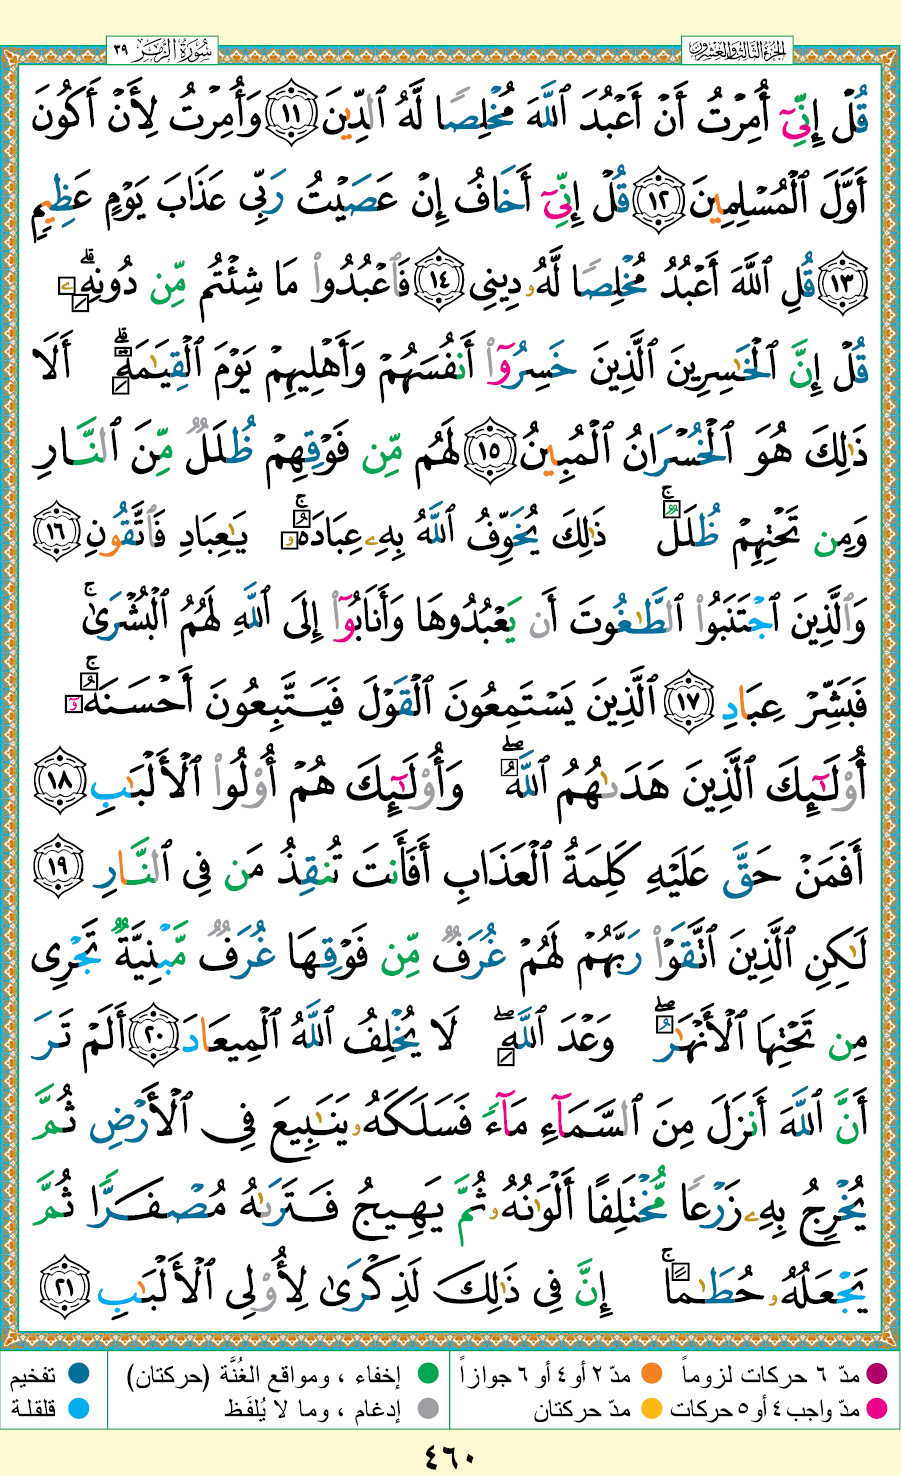 الجزء الثالث والعشرون
سُورَةُ الزُّمَر ٣٩
قُلۡ إِنِّيٓ أُمِرۡتُ أَنۡ أَعۡبُدَ ٱللَّهَ مُخۡلِصٗا لَّهُ ٱلدِّينَ ١١ وَأُمِرۡتُ لِأَنۡ أَكُونَ
أَوَّلَ ٱلۡمُسۡلِمِينَ ١٢ قُلۡ إِنِّيٓ أَخَافُ إِنۡ عَصَيۡتُ رَبِّي عَذَابَ يَوۡمٍ عَظِيمٖ
١٣ قُلِ ٱللَّهَ أَعۡبُدُ مُخۡلِصٗا لَّهُۥ دِينِي ١٤ فَٱعۡبُدُواْ مَا شِئۡتُم مِّن دُونِهِۦۗ
قُلۡ إِنَّ ٱلۡخَٰسِرِينَ ٱلَّذِينَ خَسِرُوٓاْ أَنفُسَهُمۡ وَأَهۡلِيهِمۡ يَوۡمَ ٱلۡقِيَٰمَةِۗ أَلَا
ذَٰلِكَ هُوَ ٱلۡخُسۡرَانُ ٱلۡمُبِينُ ١٥ لَهُم مِّن فَوۡقِهِمۡ ظُلَلٞ مِّنَ ٱلنَّارِ
وَمِن تَحۡتِهِمۡ ظُلَلٞۚ ذَٰلِكَ يُخَوِّفُ ٱللَّهُ بِهِۦ عِبَادَهُۥۚ يَٰعِبَادِ فَٱتَّقُونِ ١٦
وَٱلَّذِينَ ٱجۡتَنَبُواْ ٱلطَّٰغُوتَ أَن يَعۡبُدُوهَا وَأَنَابُوٓاْ إِلَى ٱللَّهِ لَهُمُ ٱلۡبُشۡرَىٰۚ
فَبَشِّرۡ عِبَادِ ١٧ ٱلَّذِينَ يَسۡتَمِعُونَ ٱلۡقَوۡلَ فَيَتَّبِعُونَ أَحۡسَنَهُۥٓۚ
أُوْلَٰٓئِكَ ٱلَّذِينَ هَدَىٰهُمُ ٱللَّهُۖ وَأُوْلَٰٓئِكَ هُمۡ أُوْلُواْ ٱلۡأَلۡبَٰبِ ١٨
أَفَمَنۡ حَقَّ عَلَيۡهِ كَلِمَةُ ٱلۡعَذَابِ أَفَأَنتَ تُنقِذُ مَن فِي ٱلنَّارِ ١٩
لَٰكِنِ ٱلَّذِينَ ٱتَّقَوۡاْ رَبَّهُمۡ لَهُمۡ غُرَفٞ مِّن فَوۡقِهَا غُرَفٞ مَّبۡنِيَّةٞ تَجۡرِي
مِن تَحۡتِهَا ٱلۡأَنۡهَٰرُۖ وَعۡدَ ٱللَّهِۖ لَا يُخۡلِفُ ٱللَّهُ ٱلۡمِيعَادَ ٢٠ أَلَمۡ تَرَ
أَنَّ ٱللَّهَ أَنزَلَ مِنَ ٱلسَّمَآءِ مَآءٗ فَسَلَكَهُۥ يَنَٰبِيعَ فِي ٱلۡأَرۡضِ ثُمَّ
يُخۡرِجُ بِهِۦ زَرۡعٗا مُّخۡتَلِفًا أَلۡوَٰنُهُۥ ثُمَّ يَهِيجُ فَتَرَىٰهُ مُصۡفَرّٗا ثُمَّ
يَجۡعَلُهُۥ حُطَٰمًاۚ إِنَّ فِي ذَٰلِكَ لَذِكۡرَىٰ لِأُوْلِي ٱلۡأَلۡبَٰبِ ٢١
مدّ ٦ حركات لزوماً مدّ ٢ أو ٤ أو ٦ جوازاً إخفاء ، ومواقع الغُنَّة (حركتان) تفخيم
مدّ واجب ٤ أو ٥ حركات مدّ حركتان إدغام ، وما لا يُلفَظ قلقلة
٤٦٠